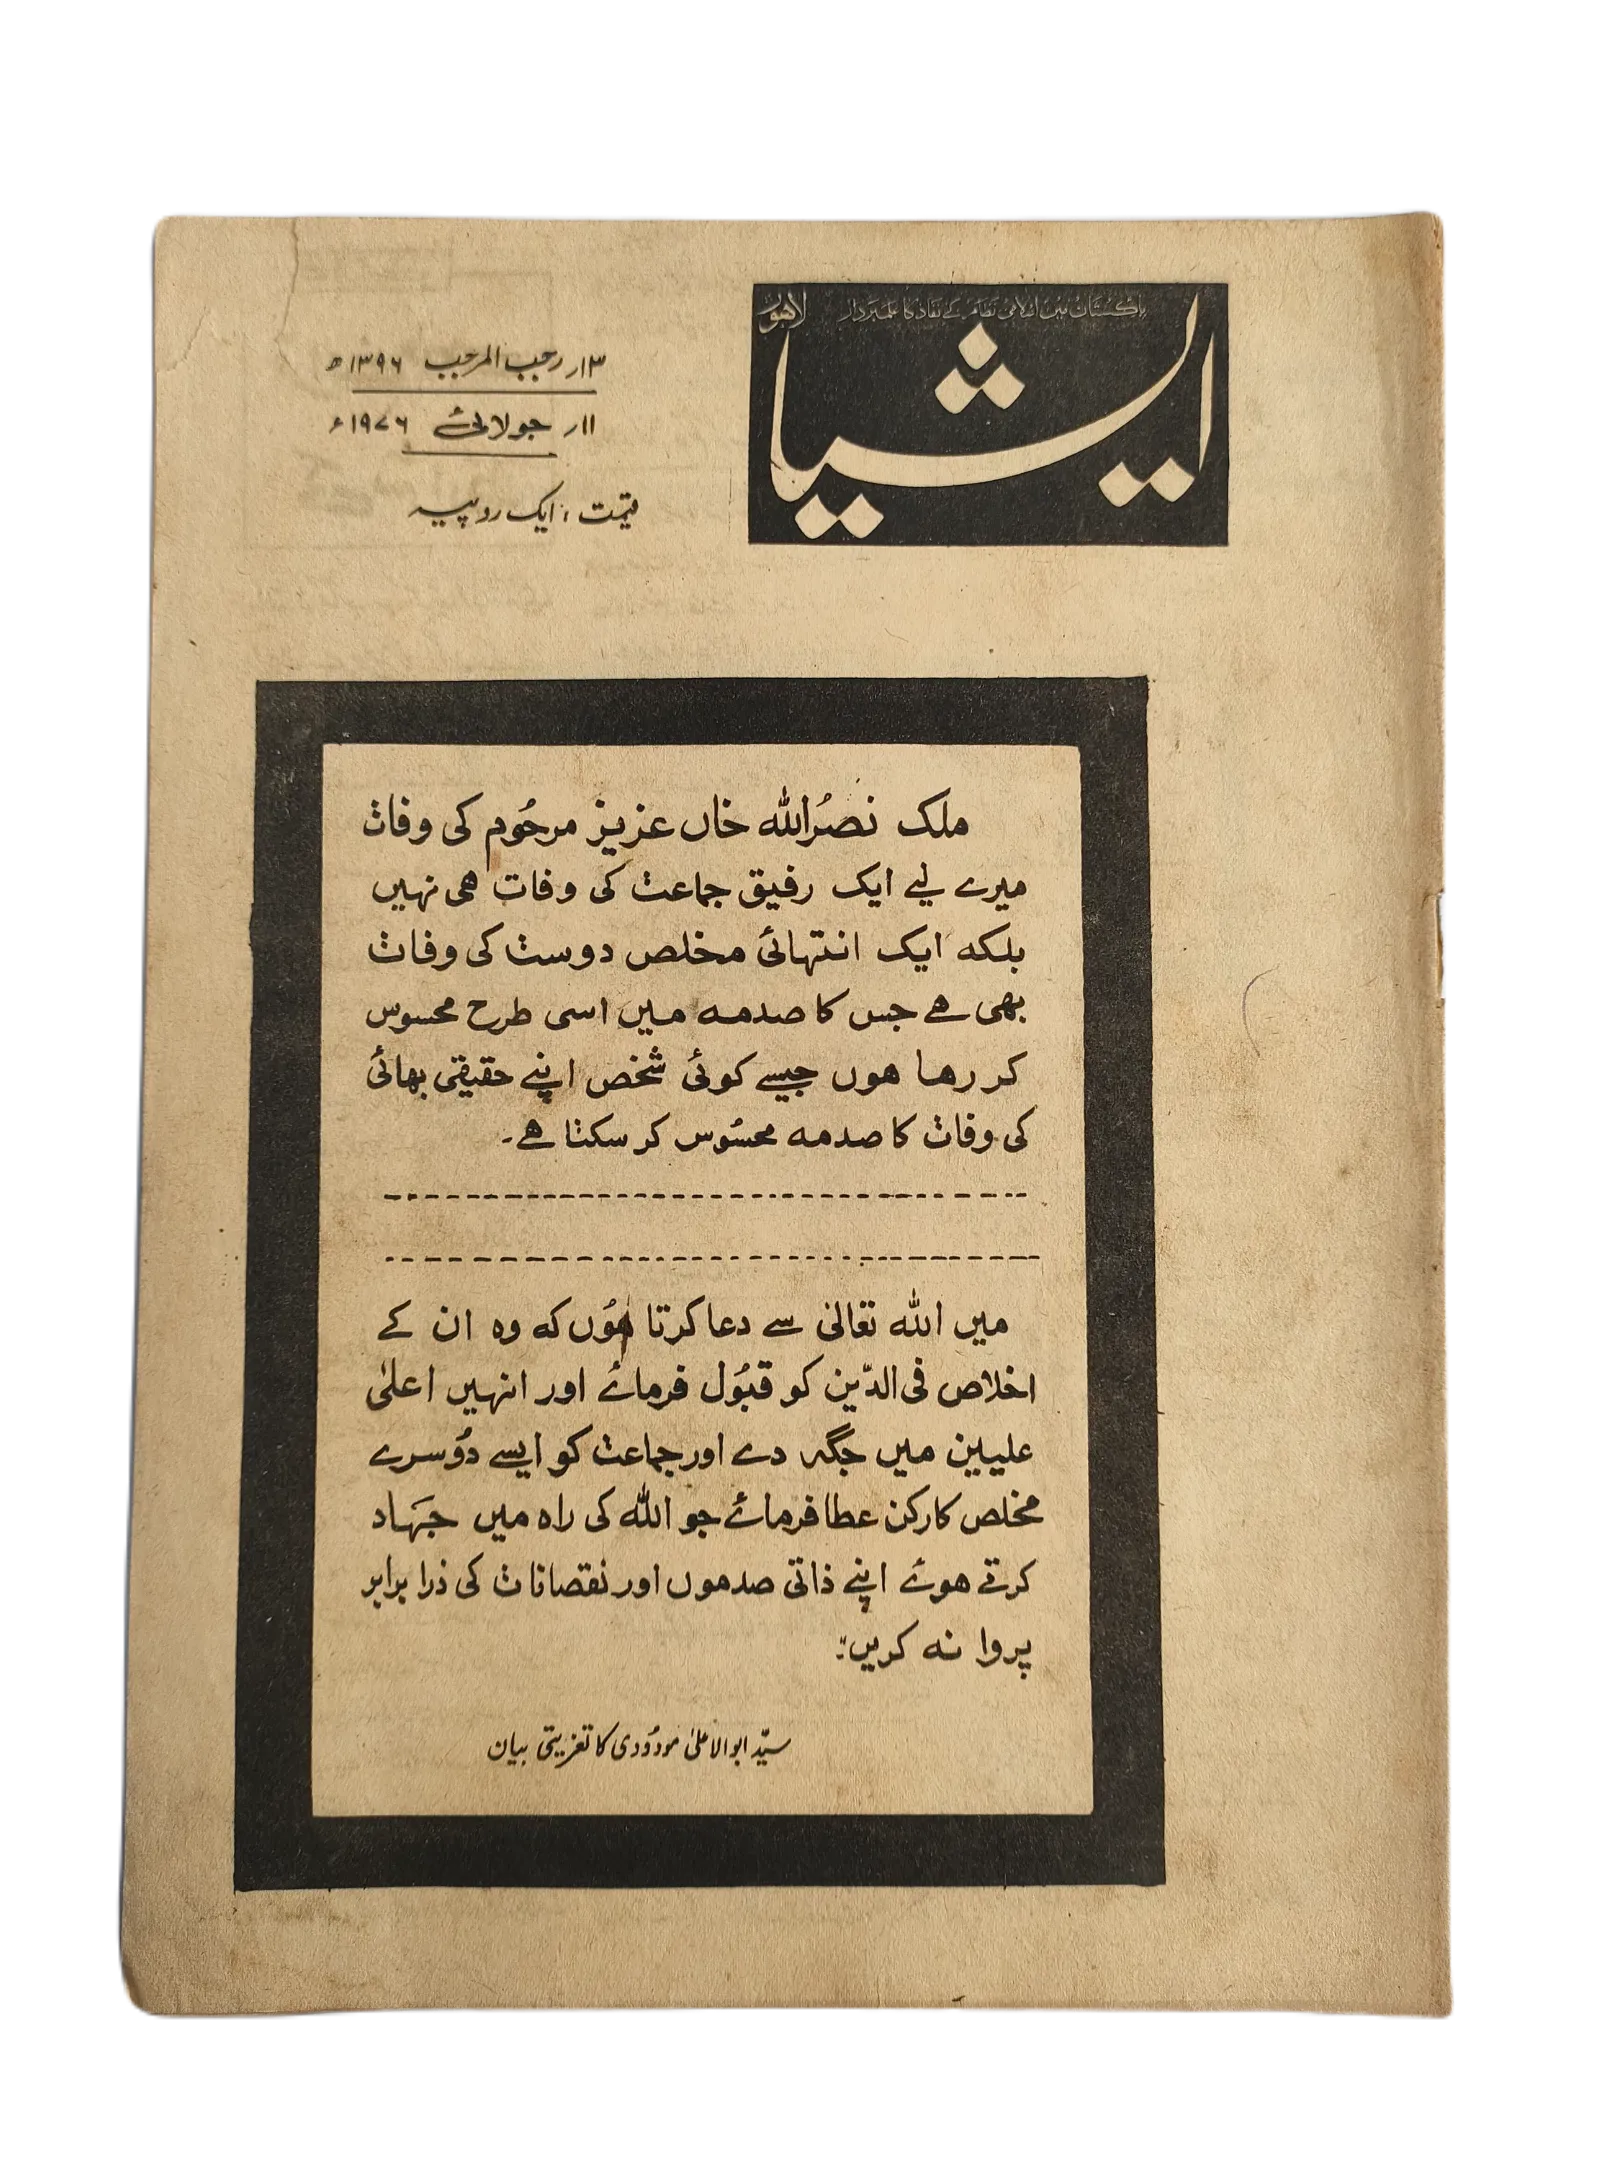 پاکستان میں اسلامی نظام کے نفاذ کا علمبردار
لاہور
ایشیا
۱۳ر رجب المرجب ۱۳۹۶ھ
۱۱ر جولائی ۱۹۷۶ء
قیمت: ایک روپیہ
ملک نصرُاللہ خاں عزیز مرحُوم کی وفات
میرے لیے ایک رفیق جماعت کی وفات ھی نہیں
بلکہ ایک انتہائی مخلص دوست کی وفات
بھی ھے جس کا صدمہ میں اسی طرح محسوس
کر رھا ھوں جیسے کوئی شخص اپنے حقیقی بھائی
کی وفات کا صدمہ محسُوس کر سکتا ھے۔
میں اللہ تعالیٰ سے دعا کرتا ھُوں کہ وہ ان کے
اخلاص فی الدّین کو قبُول فرمائے اور انہیں اعلیٰ
علیین میں جگہ دے اور جماعت کو ایسے دُوسرے
مخلص کارکن عطا فرمائے جو اللہ کی راہ میں جہَاد
کرتے ھوئے اپنے ذاتی صدموں اور نقصانات کی ذرا برابر
پروا نہ کریں؛
سیّد ابوالاعلیٰ مودُودی کا تعزیتی بیان